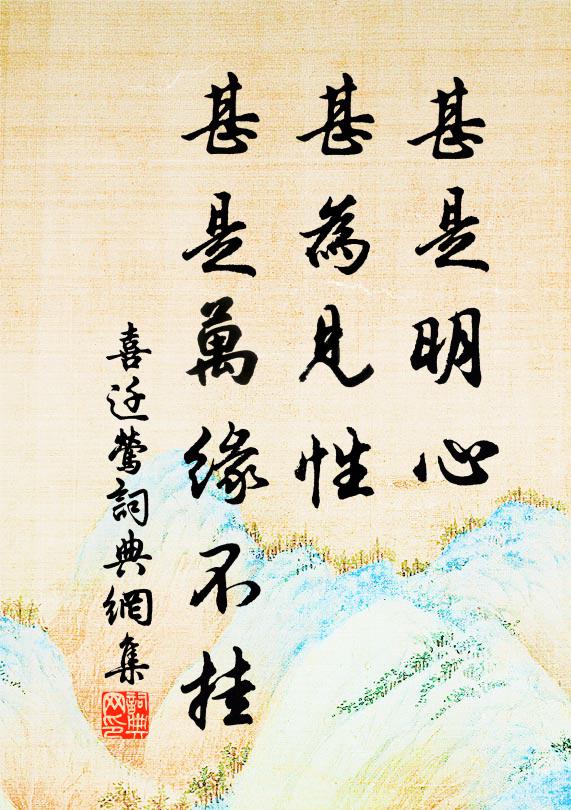 甚是明心
甚為見性
甚是萬緣不挂
喜迁鶯詞典網集
詞典网印